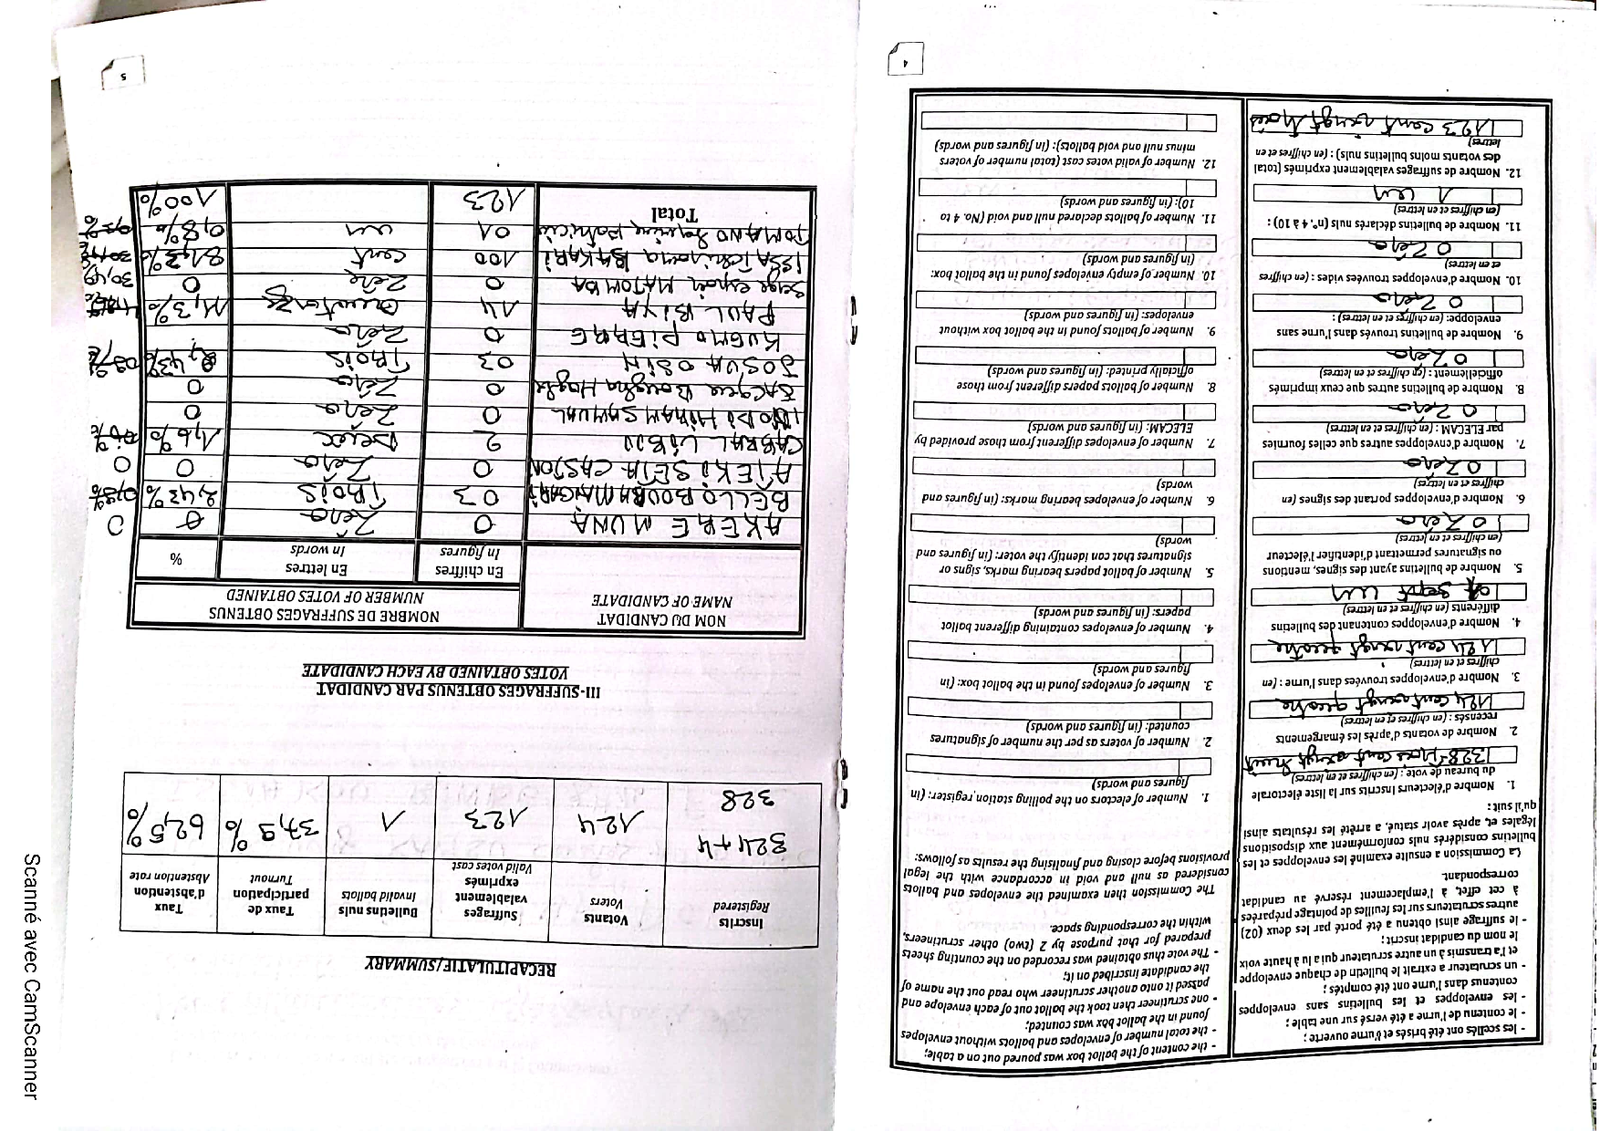 4
- les scellés ont été brisés et l'urne ouverte ;
- le contenu de l'urne a été versé sur une table ;
- les enveloppes et les bulletins sans enveloppes
contenus dans l'urne ont été comptés ;
- un scrutateur a extrait le bulletin de chaque enveloppe
et l'a transmis à un autre scrutateur qui a lu à haute voix
le nom du candidat inscrit ;
- le suffrage ainsi obtenu a été porté par les deux (02)
autres scrutateurs sur les feuilles de pointage préparées
à cet effet, à l'emplacement réservé au candidat
correspondant.
La Commission a ensuite examiné les enveloppes et les
bulletins considérés nuls conformément aux dispositions
légales et, après avoir statué, a arrêté les résultats ainsi
qu'il suit :
1. Nombre d'électeurs inscrits sur la liste électorale
du bureau de vote : (en chiffres et en lettres)
328 trois cent vingt huit
2. Nombre de votants d'après les émargements
recensés : (en chiffres et en lettres)
124 cent vingt quatre
3. Nombre d'enveloppes trouvées dans l'urne : (en
chiffres et en lettres)
124 cent vingt quatre
4. Nombre d'enveloppes contenant des bulletins
différents (en chiffres et en lettres)
un
5. Nombre de bulletins ayant des signes, mentions
ou signatures permettant d'identifier l'électeur
(en chiffres et en lettres)
0 Zéro
6. Nombre d'enveloppes portant des signes (en
chiffres et en lettres)
0 Zéro
7. Nombre d'enveloppes autres que celles fournies
par ELECAM : (en chiffres et en lettres)
0 Zéro
8. Nombre de bulletins autres que ceux imprimés
officiellement : (en chiffres et en lettres)
0 Zéro
9. Nombre de bulletins trouvés dans l'urne sans
enveloppe: (en chiffres et en lettres) :
0 Zéro
10. Nombre d'enveloppes trouvées vides : (en chiffres
et en lettres)
0 Zéro
11. Nombre de bulletins déclarés nuls (n°. 4 à 10) :
(en chiffres et en lettres)
1 un
12. Nombre de suffrages valablement exprimés (total
des votants moins bulletins nuls) : (en chiffres et en
lettres)
123 cent vingt trois
- the content of the ballot box was poured out on a table;
- the total number of envelopes and ballots without envelopes
found in the ballot box was counted;
- one scrutineer then took the ballot out of each envelope and
passed it onto another scrutineer who read out the name of
the candidate inscribed on it;
- The vote thus obtained was recorded on the counting sheets
prepared for that purpose by 2 (two) other scrutineers,
within the corresponding space.
The Commission then examined the envelopes and ballots
considered as null and void in accordance with the legal
provisions before closing and finalising the results as follows:
1. Number of electors on the polling station register: (in
figures and words)
2. Number of voters as per the number of signatures
counted: (in figures and words)
3. Number of envelopes found in the ballot box: (in
figures and words)
4. Number of envelopes containing different ballot
papers: (in figures and words)
5. Number of ballot papers bearing marks, signs or
signatures that can identify the voter: (in figures and
words)
6. Number of envelopes bearing marks: (in figures and
words)
7. Number of envelopes different from those provided by
ELECAM: (in figures and words)
8. Number of ballots papers different from those
officially printed: (in figures and words)
9. Number of ballots found in the ballot box without
envelopes: (in figures and words)
10. Number of empty envelopes found in the ballot box:
(in figures and words)
11. Number of ballots declared null and void (No. 4 to
10): (in figures and words)
12. Number of valid votes cast (total number of voters
minus null and void ballots): (in figures and words)
5
RECAPITULATIF/SUMMARY
Inscrits Registered | Votants Voters | Suffrages valablement exprimés Valid votes cast | Bulletins nuls Invalid ballots | Taux de participation Turnout | Taux d'abstention Abstention rate
324+4 328 | 124 | 123 | 1 | 37,9% | 62,5%
III-SUFFRAGES OBTENUS PAR CANDIDAT
VOTES OBTAINED BY EACH CANDIDATE
NOM DU CANDIDAT NAME OF CANDIDATE | NOMBRE DE SUFFRAGES OBTENUS NUMBER OF VOTES OBTAINED
En chiffres In figures | En lettres In words | %
AKERE MUNA 0 Zéro 0 0
BELLO BOUBA MAIGARI 03 Trois 2,43%
ATEKI SETA CASTON 0 Zéro 0 0
CABRAL LIBII 2 Deux 1,6%
IYODI HIRAM SAMUAL 0 Zéro 0
Zéro 0
JOSUA OSIH 03 Trois 2,43%
KUEMO PIERRE 0 Zéro
PAUL BIYA 14 Quatorze 11,3%
Serge espoir MATOMBA 0 Zéro 0 30,49
ISSA Tchiroma BAKARI 100 cent 81,3%
TOMAINO Hermine Patricia 01 un 0,8%
Total 123 100%
Scanné avec CamScanner